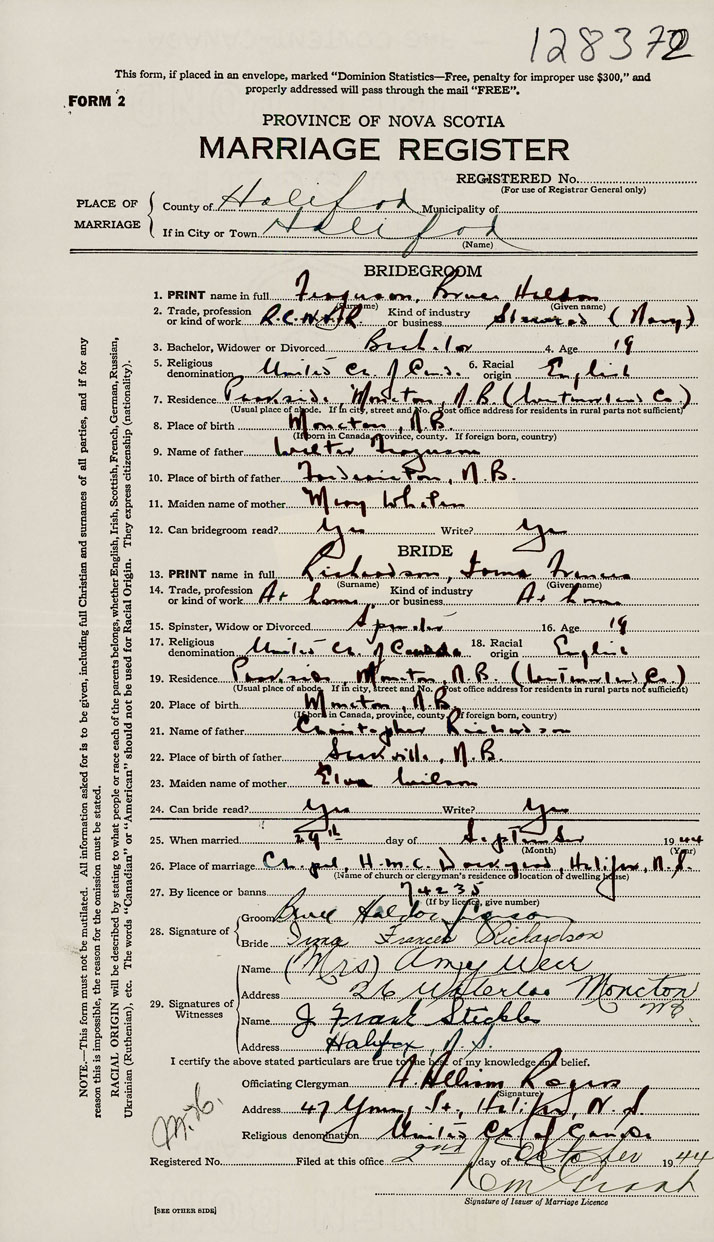 128372
This form, if placed in an envelope, marked “Dominion Statistics—Free, penalty for improper use $300,” and
properly addressed will pass through the mail “FREE”.
FORM 2
PROVINCE OF NOVA SCOTIA
MARRIAGE REGISTER
REGISTERED No.
(For use of Registrar General only)
PLACE OF MARRIAGE
County of Halifax Municipality of
If in City or Town Halifax
(Name)
BRIDEGROOM
1. PRINT name in full Ferguson, Bruce Haldon
(Surname) (Given name)
2. Trade, profession or kind of work R.C.N.V.R. Kind of industry or business Steward (Navy)
3. Bachelor, Widower or Divorced Bachelor 4. Age 19
5. Religious denomination United Ch. of Can. 6. Racial origin English
7. Residence Parkside, Moncton, N.B. (Westmorland Co.)
(Usual place of abode. If in city, street and No. Post office address for residents in rural parts not sufficient)
8. Place of birth Moncton, N.B.
(If born in Canada, province, county. If foreign born, country)
9. Name of father Walter Ferguson
10. Place of birth of father Fredericton, N.B.
11. Maiden name of mother Mary Whalen
12. Can bridegroom read? Yes Write? Yes
BRIDE
13. PRINT name in full Richardson, Irma Frances
(Surname) (Given name)
14. Trade, profession or kind of work At home Kind of industry or business At home
15. Spinster, Widow or Divorced Spinster 16. Age 19
17. Religious denomination United Ch. of Canada 18. Racial origin English
19. Residence Parkside, Moncton, N.B. (Westmorland Co.)
(Usual place of abode. If in city, street and No. Post office address for residents in rural parts not sufficient)
20. Place of birth Moncton, N.B.
(If born in Canada, province, county. If foreign born, country)
21. Name of father Christopher Richardson
22. Place of birth of father Sackville, N.B.
23. Maiden name of mother Elva Wilson
24. Can bride read? Yes Write? Yes
25. When married 29th day of September 1944
(Month) (Year)
26. Place of marriage Chapel, H.M.C. Dockyard, Halifax, N.S.
(Name of church or clergyman's residence or location of dwelling house)
27. By licence or banns 74235
(If by licence, give number)
28. Signature of
Groom Bruce Haldon Ferguson
Bride Irma Frances Richardson
29. Signatures of Witnesses
Name (Mrs) Amy Weir
Address 26 Waterloo Moncton N.B.
Name J. Frank Stickles
Address Halifax, N.S.
I certify the above stated particulars are true to the best of my knowledge and belief.
Officiating Clergyman A. William Rogers
(Signature)
Address 47 Young St., Halifax, N.S.
Religious denomination United Ch. of Canada
Registered No. Filed at this office 2nd day of October 1944
Signature of Issuer of Marriage Licence
[SEE OTHER SIDE]
NOTE.—This form must not be mutilated. All information asked for is to be given, including full Christian and surnames of all parties, and if for any
reason this is impossible, the reason for the omission must be stated.
RACIAL ORIGIN will be described by stating to what people or race each of the parents belongs, whether English, Irish, Scottish, French, German, Russian,
Ukrainian (Ruthenian), etc. The words “Canadian” or “American” should not be used for Racial Origin. They express citizenship (nationality).